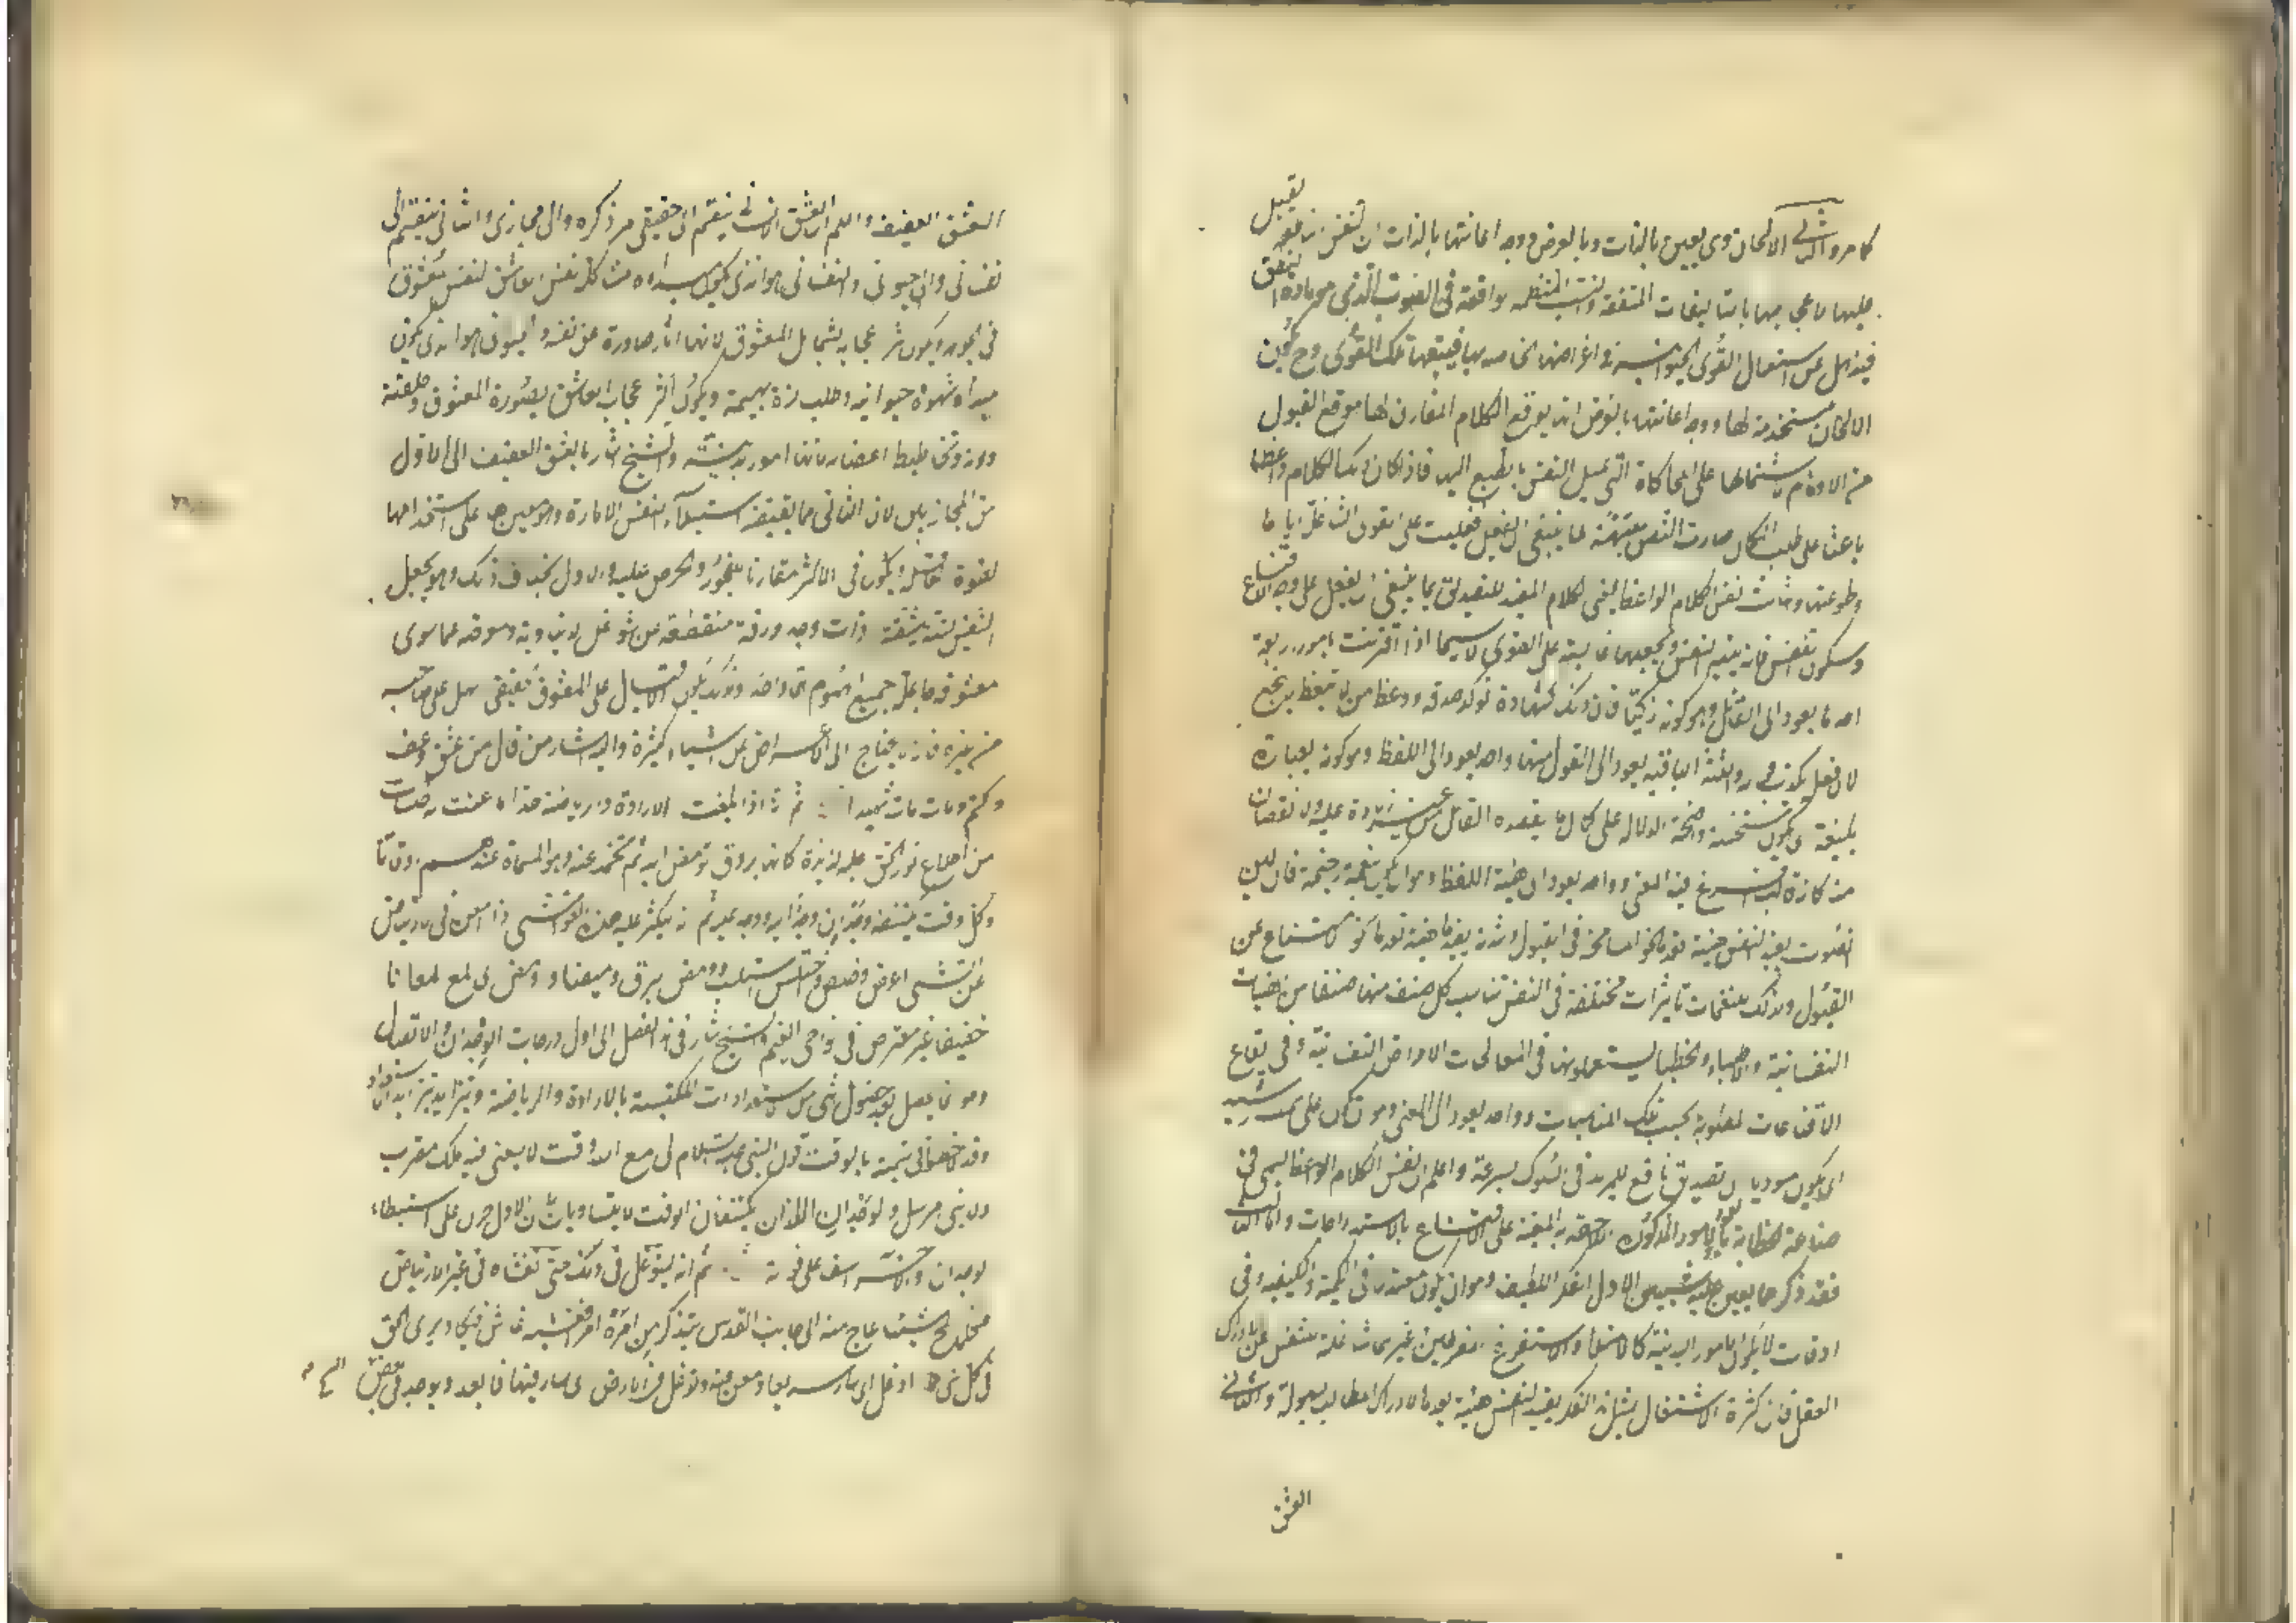 كما مر والثانى الالحان وهى يعين بالذات وبالعرض ووجه اعانتها بالذات ان النفس الناطقة يقبل
عليها لاعجابها بالتاليفات المتفقة والنسب المنتظمه الواقعة فى الصوت الذى هو مادة النطق
فيذهل عن استعمال القوى الحيوانية فى اغراضها الخاصه بها فيتبعها تلك القوى وح يكون
الالحان مستخدمة لها ووجه اعانتها بالعرض انه يوقع الكلام المقارن لها موقع القبول
من الاوهام لاشتمالها على المحاكاة التى تميل النفس بالطبع اليه فاذا كان ذلك الكلام واعظا
باعثا على طلب الكمال صارت النفس متنبهة لما ينبغى ان يفعل فغلبت على القوى الشاغلة اياها
وطوعتها والثالث نفس الكلام الواعظ اعنى الكلام المفيد للتصديق بما ينبغى ان يفعل على وجه الاقناع
وسكون النفس فانه ينبه النفس ويجعلها غالبة على القوى لاسيما اذا اقترنت بامور اربعة
احدها يعود الى القائل وهو كونه زكيا فان ذلك كشهادة تؤكد صدقه ووعظ من لا يتعظ لا ينجع
لان فعله يكذب قوله والثلثة الباقيه يعود الى القول منها واحد يعود الى اللفظ وهو كونه بعبارة
بليغة اى يكون مستحسنة واضحة الدلالة على كمال ما يقصده القائل من غير زيادة عليه ولا نقصان
منه كانه قالب افرغ فيه المعنى وواحد يعود الى هيئة اللفظ وهو ان يكون بنغمة رخيمة فان لين
الصوت يفيد النفس هيئة تعدها نحو المسامحة فى القبول وشدته يفيدها هيئة تعدها نحو الامتناع عن
القبول ولذلك للنغمات تاثيرات مختلفة فى النفس تناسب كل صنف منها صنفا من الهيئات
النفسانية والاطباء والخطباء يستعملونها فى المعالجات الامراض النفسانية وفى ايقاع
الاقناعات المطلوبة بحسب تلك المناسبات وواحد يعود الى المعنى وهو ان يكون على سمت رشيد
اى يكون مؤديا الى تصديق نافع للمريد فى السلوك بسرعة واعلم ان نفس الكلام الواعظ يسمى فى
صناعة الخطابة بالعمود والامور المذكورة اللاحقة به المعينة على الاقناع بالاستدراجات واما الثالث
فقد ذكر مما يعين عليه شيئين الاول الفكر اللطيف وهو ان يكون معتدلا فى الكمية والكيفيه وفى
اوقات لا يكون الامور البدنية كالامتلاء والاستفراغ المفرطين غيرهما شاغلة للنفس عن ادراك
العقل فان كثرة الاشتغال بمثل هذا الفكر يفيد النفس هيئة يعدها لادراك المطالب بسهولة والثانى
العشق
العشق العفيف واعلم ان العشق الانسانى ينقسم الى حقيقى مر ذكره والى مجازى والثانى ينقسم الى
نفسانى والى حيوانى والنفسانى هو الذى يكون مبداه مشاكلة نفس العاشق لنفس المعشوق
فى الجوهر ويكون اكثر اعجابه بشمايل المعشوق لانها اثار صادرة عن نفسه والحيوانى هو الذى يكون
مبداه شهوة حيوانيه وطلب لذة بهيمية ويكون اكثر اعجاب العاشق بصورة المعشوق وخلقته
ولونه وتخاطيط اعضائه لانها امور بدنية والشيخ اشار بالعشق العفيف الى الاول
من المجازيين لان الثانى مما يقتضيه استيلاء النفس الامارة وهو معين لها على استخدامها
القوة العاقلة ويكون فى الاكثر مقارنا للفجور والحرص عليه والاول بخلاف ذلك وهو يجعل
النفس لينة شيقة ذات وجد ورقة منقطعة عن الشواغل الدنياوية ومعرضه عما سوى
معشوقه جاعلة جميع الهموم هما واحدا ولذلك يكون الاقبال على المعشوق الحقيقى اسهل على صاحبه
من غيره فانه لا يحتاج الى الاعراض عن اشياء كثيرة واليه اشار من قال من عشق وعف
وكتم ومات مات شهيدا ثم انه اذا بلغت الارادة والرياضة حدا ما عنت له خلسات
من اطلاع نور الحق عليه لذيذة كانها بروق تومض اليه ثم تخمد عنه وهو المسماة عندهم اوقاتا
وكل وقت يكتنفه وجدان وجد اليه ووجد عليه ثم انه ليكثر عليه هذه الغواشى اذا امعن فى الارتياض
عن الشىء اعرض وخلص وختلس استلب وومض برق وميضا و ومض اى لمع لمعانا
خفيفا غير معترض فى نواحى الغيم والشيخ اشار فى هذا الفصل الى اول درجات الوجدان والاتصال
وهو انما يحصل بعد حصول شىء من الاستعدادات المكتسبة بالارادة والرياضة ويتزايد بتزايد الاستعداد
وقد لاحظوا فى تسمية بالوقت قول النبى عليه السلام لى مع الله وقت لا يسعنى فيه ملك مقرب
ولا نبى مرسل والوجدان اللذان يكتنفان الوقت لا يتساويان لان الاول حزن على استبطاء
الوجدان والاخر اسف على فواته ثم انه ليتوغل فى ذلك حتى تغشاه فى غير الارتياض
فكلما لمح شيئا عاج منه الى جانب القدس يتذكر من امره امرا فغشيه غاش فيكاد يرى الحق
فى كل شىء اوغل اى سار سريعا وامعن فيه وتوغل فى الارض اى سار فيها فابعد ويوجد فى بعض النسخ